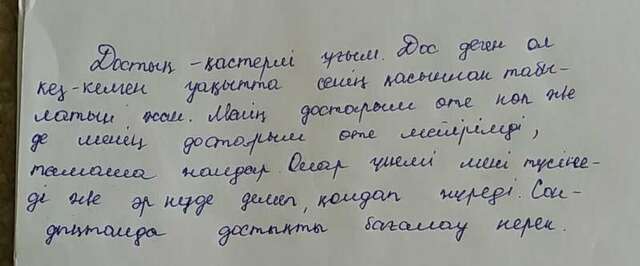 Достық - қастерлі ұғым. Дос деген ол
кез-келген уақытта сенің қасыңнан табы-
латын жан. Менің достарым өте көп және
де менің достарым өте мейірімді,
тамаша жандар. Олар үнемі мені түсіне-
ді және әр кезде демеп, қолдап жүреді. Сон-
дықтанда достықты бағалау керек.